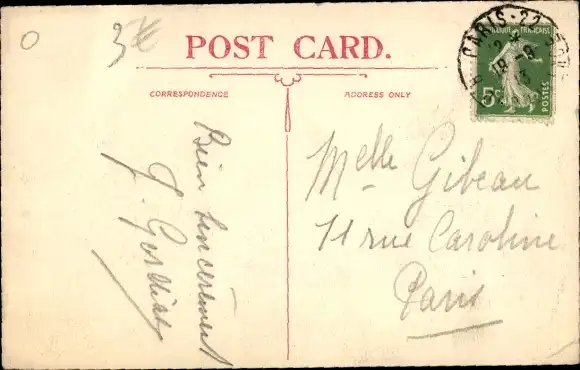 3€
POST CARD.
CORRESPONDENCE
ADDRESS ONLY
PARIS-22
18-8
5c
POSTES
Bien sincèrement
Melle Gibeau
11 rue Caroline
Paris